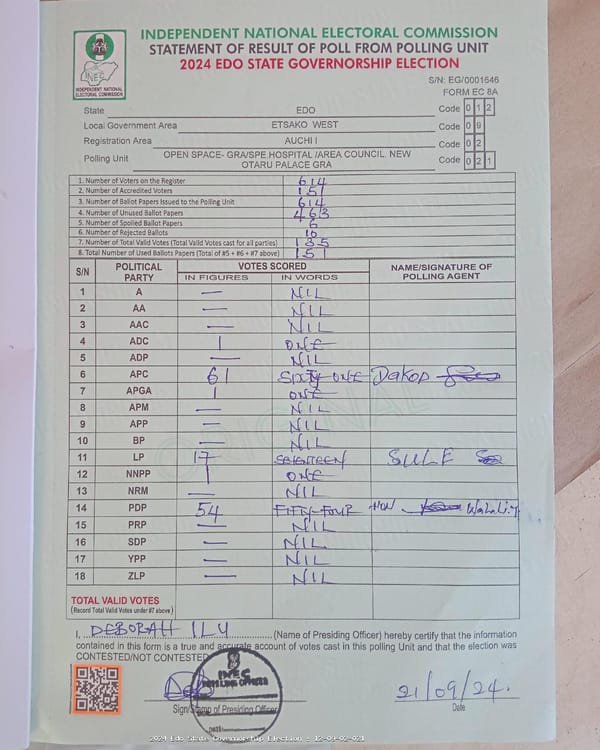 INDEPENDENT NATIONAL ELECTORAL COMMISSION
STATEMENT OF RESULT OF POLL FROM POLLING UNIT
2024 EDO STATE GOVERNORSHIP ELECTION
INEC
INDEPENDENT NATIONAL
ELECTORAL COMMISSION
S/N: EG/0001646
FORM EC 8A
State EDO Code 0 1 2
Local Government Area ETSAKO WEST Code 0 9
Registration Area AUCHI I Code 0 2
Polling Unit OPEN SPACE- GRA/SPE.HOSPITAL /AREA COUNCIL. NEW OTARU PALACE GRA Code 0 2 1
1. Number of Voters on the Register 614
2. Number of Accredited Voters 151
3. Number of Ballot Papers Issued to the Polling Unit 614
4. Number of Unused Ballot Papers 463
5. Number of Spoiled Ballot Papers 6
6. Number of Rejected Ballots 10
7. Number of Total Valid Votes (Total Valid Votes cast for all parties) 135
8. Total Number of Used Ballots Papers (Total of #5 + #6 + #7 above) 151
S/N POLITICAL PARTY VOTES SCORED NAME/SIGNATURE OF POLLING AGENT
IN FIGURES IN WORDS
1 A — NIL
2 AA — NIL
3 AAC — NIL
4 ADC 1 ONE
5 ADP — NIL
6 APC 61 SIXTY ONE
7 APGA 1 ONE
8 APM — NIL
9 APP — NIL
10 BP — NIL
11 LP 17 SEVENTEEN SULE
12 NNPP 1 ONE
13 NRM — NIL
14 PDP 54 FIFTY-FOUR HON
15 PRP — NIL
16 SDP — NIL
17 YPP — NIL
18 ZLP — NIL
TOTAL VALID VOTES
(Record Total Valid Votes under #7 above)
ORIGINAL
I, DEBORAH ILU (Name of Presiding Officer) hereby certify that the information
contained in this form is a true and accurate account of votes cast in this polling Unit and that the election was
CONTESTED/NOT CONTESTED
INEC
Deb
21/09/24.
Sign/Stamp of Presiding Officer
Date
DATE
2024 Edo State Governorship Election : 12-09-02-021